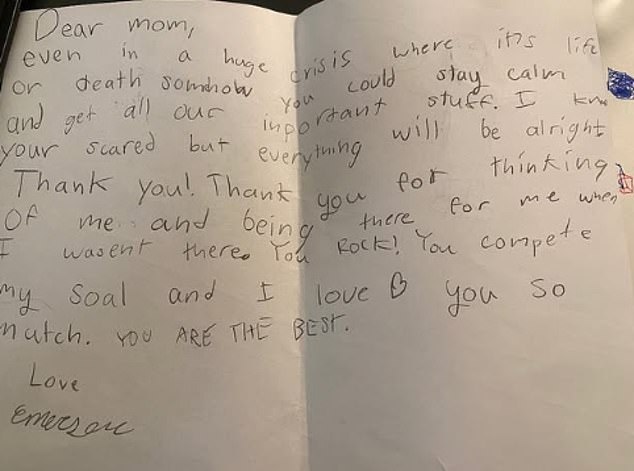 Dear mom,
even in a huge crisis where it's life
or death somhow you could stay calm
and get all our inportant stuff. I knw
your scared but everything will be alright
Thank you! Thank you for thinking
Of me and being there for me when
I wasent there. You ROCK! You compete
my soal and I love you so
mutch. YOU ARE THE BEST.
Love